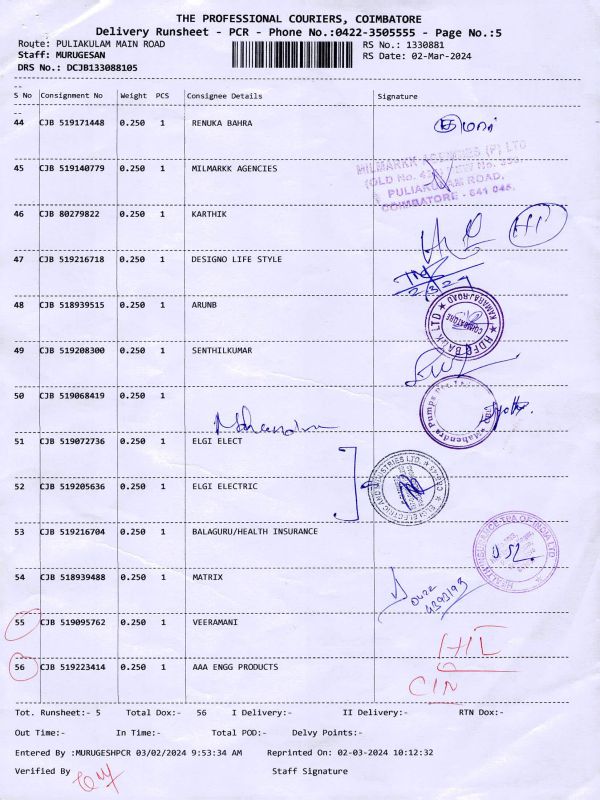 THE PROFESSIONAL COURIERS, COIMBATORE
Delivery Runsheet - PCR - Phone No.:0422-3505555 - Page No.:5
Route: PULIAKULAM MAIN ROAD RS No.: 1330881
Staff: MURUGESAN RS Date: 02-Mar-2024
DRS No.: DCJB133088105
S No Consignment No Weight PCS Consignee Details Signature
44 CJB 519171448 0.250 1 RENUKA BAHRA
45 CJB 519140779 0.250 1 MILMARKK AGENCIES
MILMARKK AGENCIES (P) LTD
PULIAKULAM ROAD,
COIMBATORE - 641 045.
46 CJB 80279822 0.250 1 KARTHIK
47 CJB 519216718 0.250 1 DESIGNO LIFE STYLE
2/3/24
48 CJB 518939515 0.250 1 ARUNB
HDFC BANK LTD
KAMARAJ ROAD
COIMBATORE
49 CJB 519208300 0.250 1 SENTHILKUMAR
50 CJB 519068419 0.250 1
Mahendra Pumps
51 CJB 519072736 0.250 1 ELGI ELECT
52 CJB 519205636 0.250 1 ELGI ELECTRIC
53 CJB 519216704 0.250 1 BALAGURU/HEALTH INSURANCE
HEALTH INSURANCE TPA OF INDIA LTD
54 CJB 518939488 0.250 1 MATRIX
55 CJB 519095762 0.250 1 VEERAMANI
56 CJB 519223414 0.250 1 AAA ENGG PRODUCTS
CIN
Tot. Runsheet:- 5 Total Dox:- 56 I Delivery:- II Delivery:- RTN Dox:-
Out Time:- In Time:- Total POD:- Delvy Points:-
Entered By :MURUGESHPCR 03/02/2024 9:53:34 AM Reprinted On: 02-03-2024 10:12:32
Verified By Staff Signature